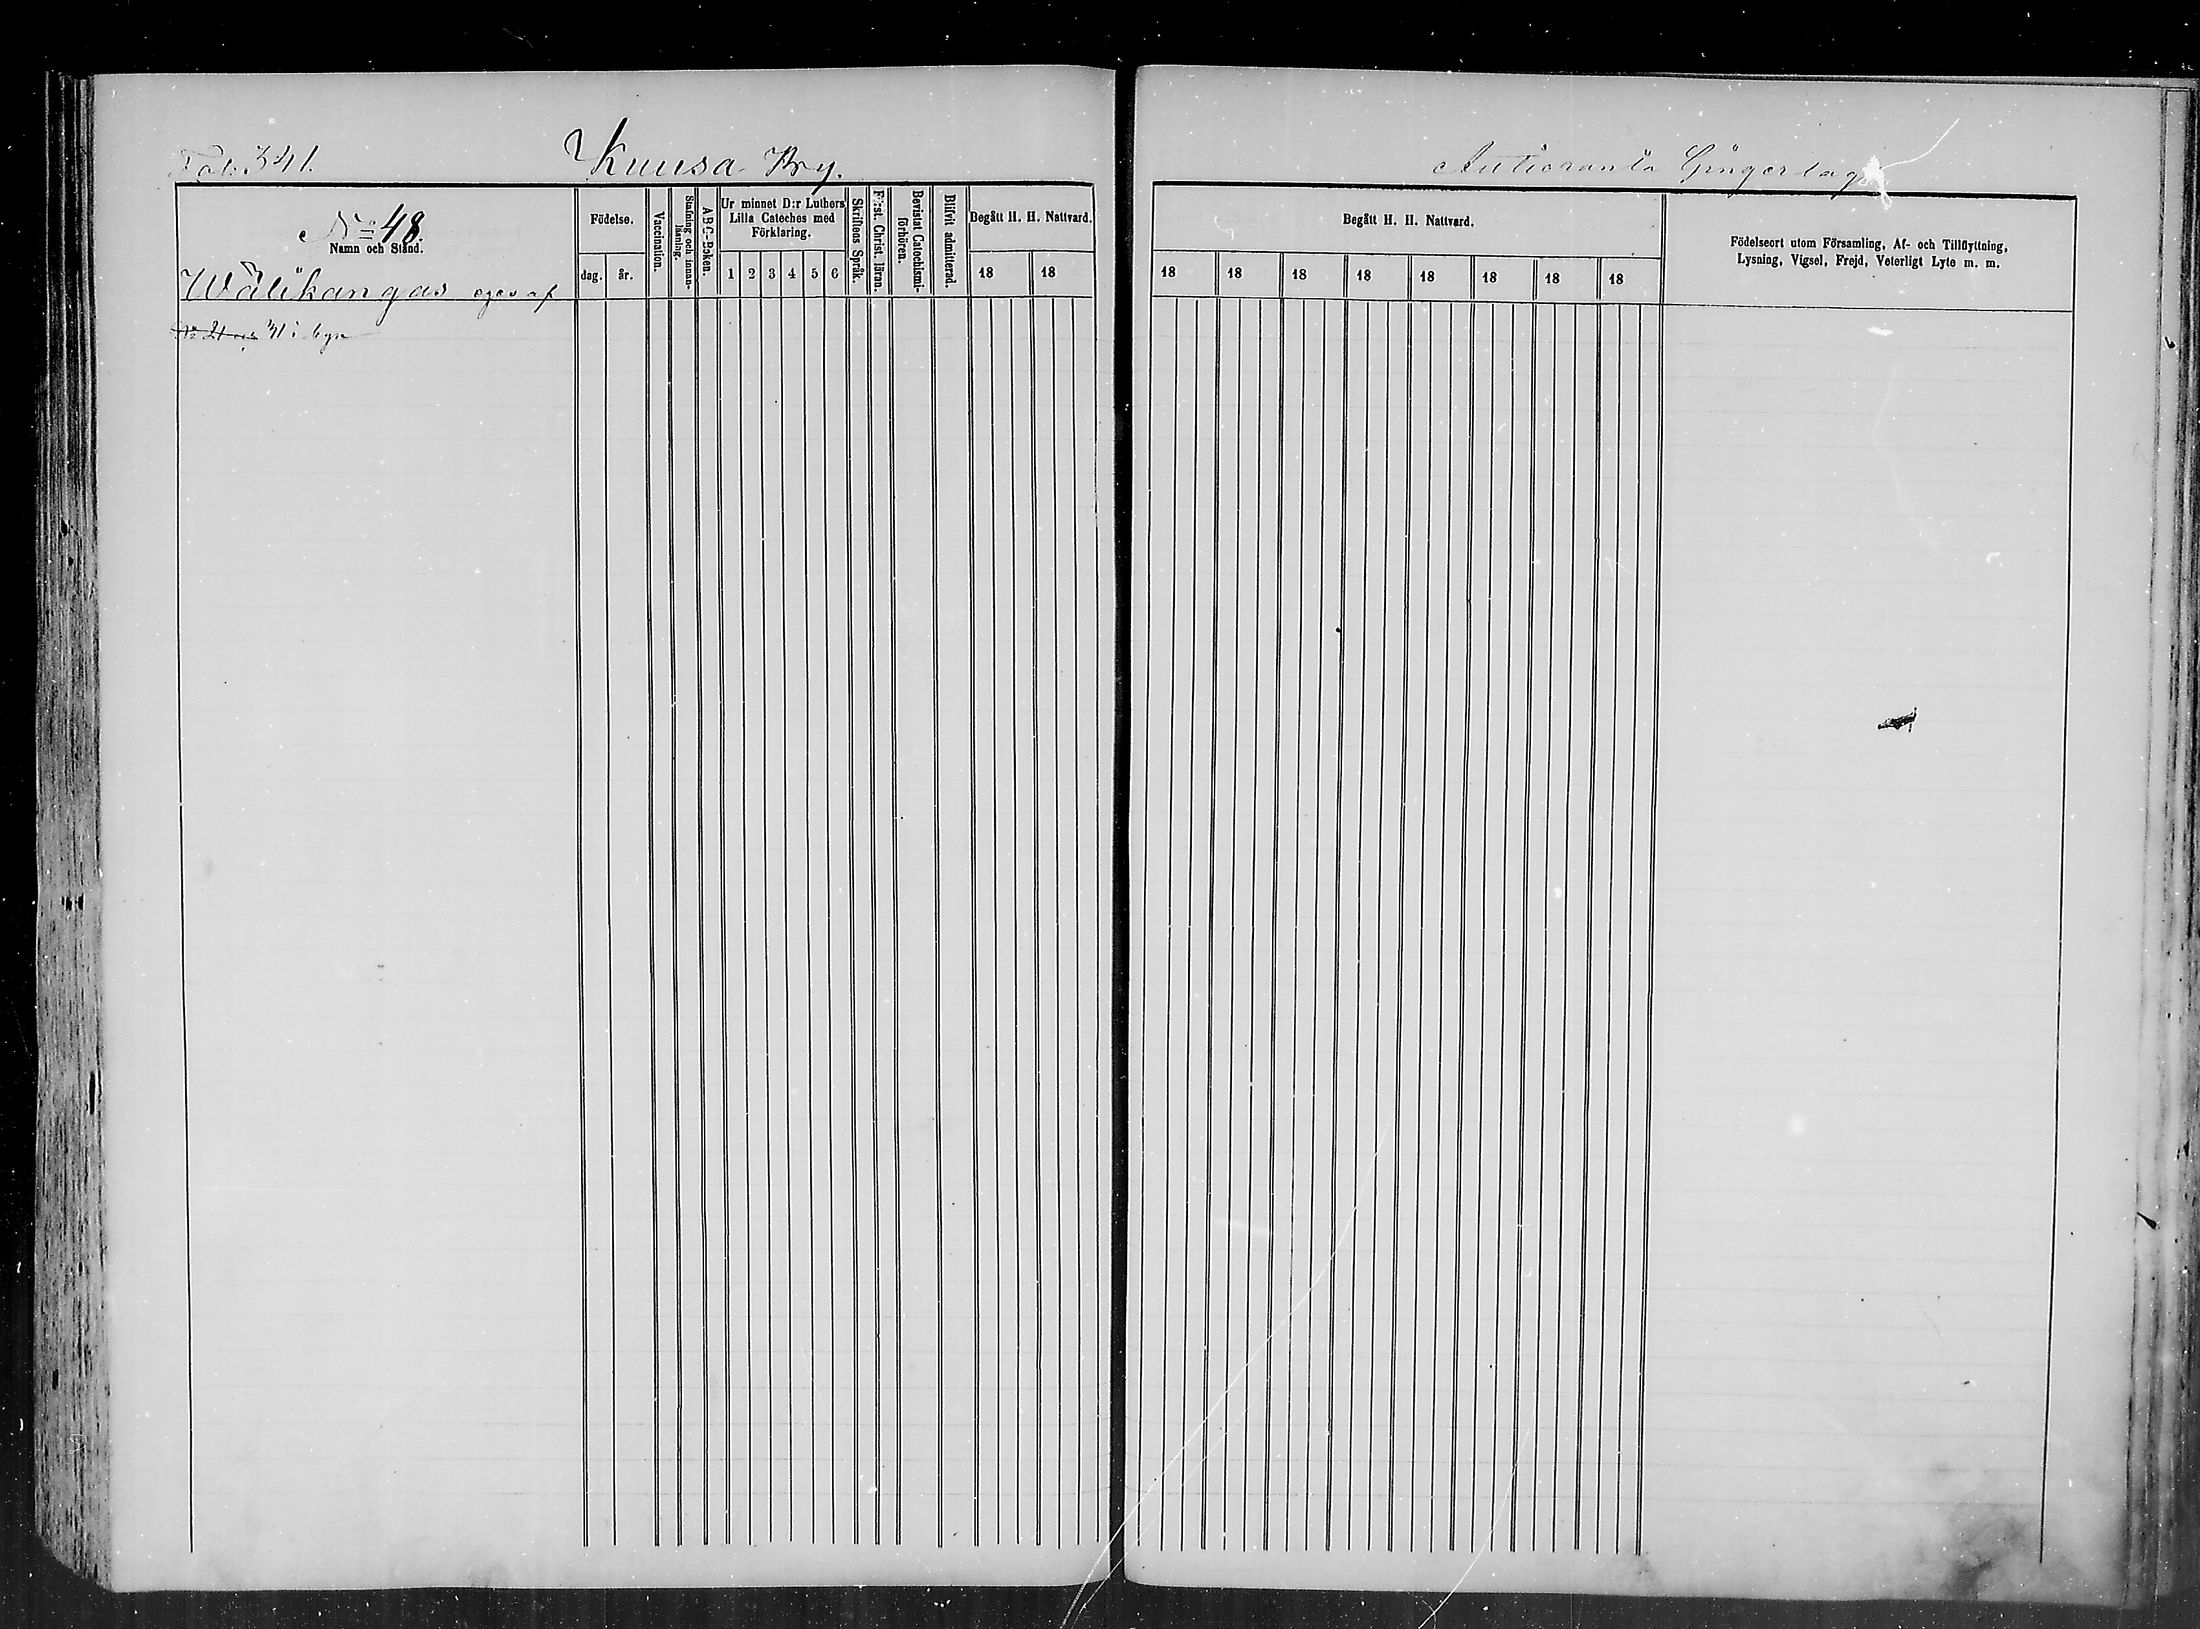 Fol: 341.
Kuusa By.
No 48.
Namn och Stånd.
Födelse.
dag.
år.
Vaccination.
Stafning och innan-
läsning.
ABC-Boken.
Ur minnet D:r Luthers
Lilla Cateches med
Förklaring.
1 2 3 4 5 6
Skriftens Språk.
Först. Christ. läran.
Bevistat Catechismi-
förhören.
Blifvit admitterad.
Begått H. H. Nattvard.
18 18
Wälikangas eges af
No 21 31 i byn
Autioranta Gingerlag
Begått H. H. Nattvard.
18 18 18 18 18 18 18 18
Födelseort utom Församling, Af- och Tillflyttning,
Lysning, Vigsel, Frejd, Veterligt Lyte m. m.